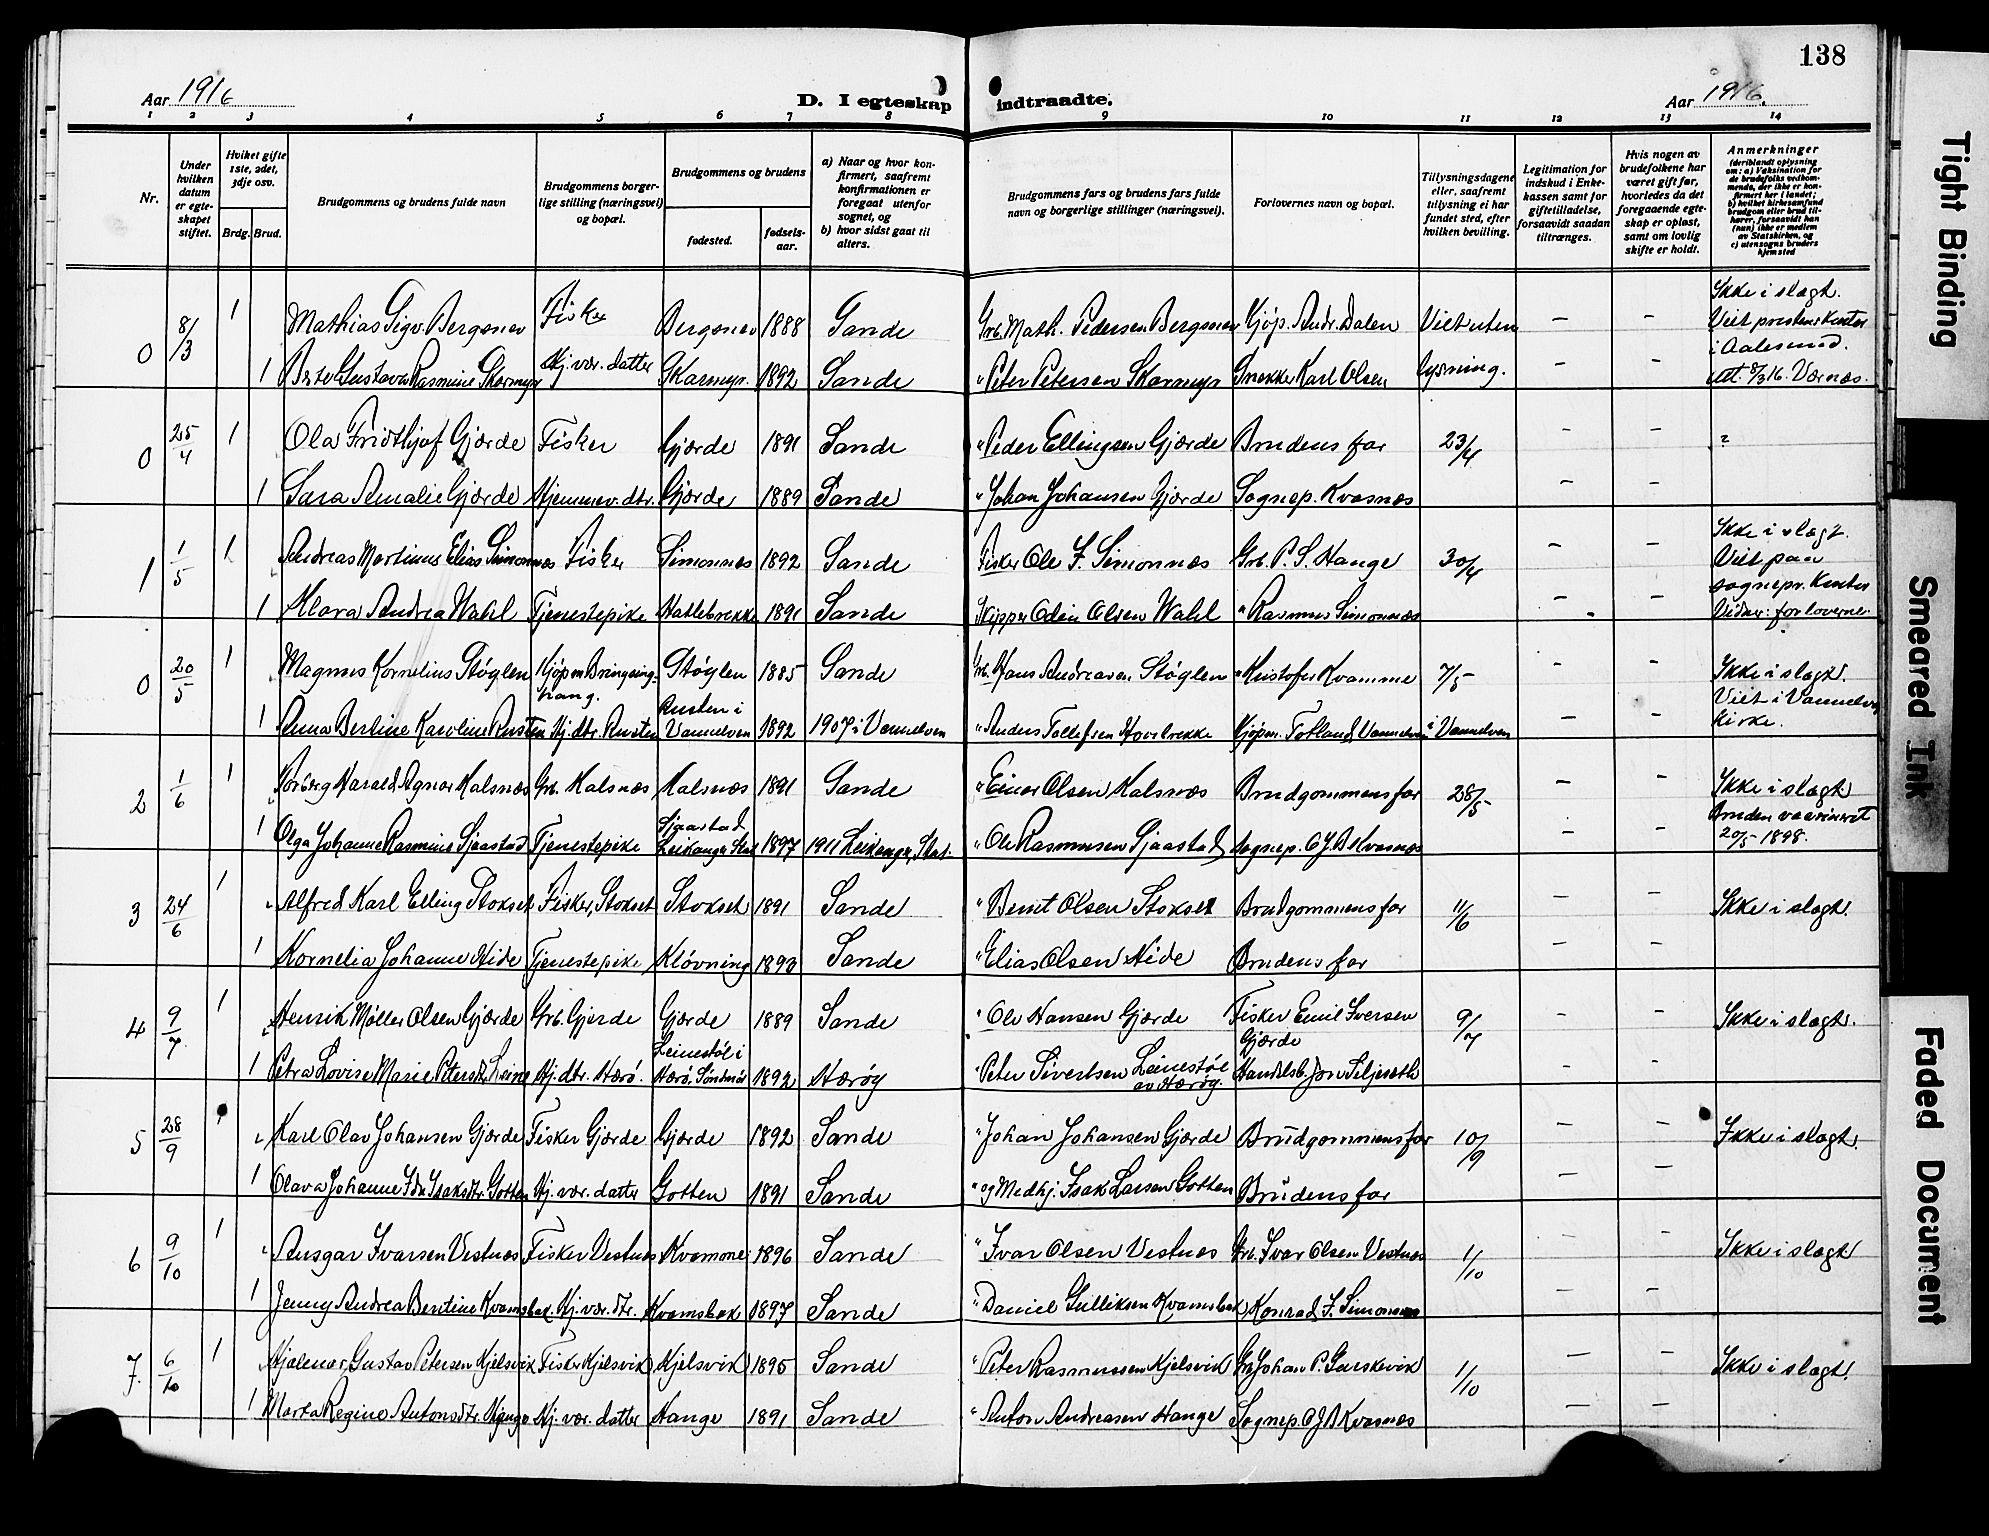 138
Aar 1916
D. I egteskap indtraadte.
Aar 1916.
1 2 3 4 5 6 7 8 9 10 11 12 13 14
Nr.
Under hvilken datum er egteskapet stiftet.
Hvilket gifte 1ste, 2det, 3dje osv.
Brdg. Brud.
Brudgommens og brudens fulde navn
Brudgommens borgerlige stilling (næringsvei) og bopæl.
Brudgommens og brudens
fødested.
fødselsaar.
a) Naar og hvor konfirmert, saafremt konfirmationen er foregaat utenfor sognet, og
b) hvor sidst gaat til alters.
Brudgommens fars og brudens fars fulde navn og borgerlige stillinger (næringsvei).
Forlovernes navn og bopæl.
Tillysningsdagene eller, saafremt tillysning ei har fundet sted, efter hvilken bevilling.
Legitimation for indskud i Enkekassen samt for giftetilladelse, forsaavidt saadan tiltrænges.
Hvis nogen av brudefolkene har været gift før, hvorledes da det foregaaende egteskap er opløst, samt om lovlig skifte er holdt.
Anmerkninger (deriblandt oplysning om: a) Vaksination for de brudefolks vedkommende, der ikke er konfirmert her i landet; b) hvilket kirkesamfund brudgom eller brud tilhører, forsaavidt han (hun) ikke er medlem av Statskirken, og c) utensogns bruders hjemsted
0 8/3 1 Mathias Sigv. Bergsnev Fisker Bergsnev 1888 Sande Grb. Math. Pedersen Bergsnev Kjøp. Andr. Dalen Viet uten — — Ikke i slægt. Viet
1 Gustava Rasmine Skarmyr Hj. vær. datter Skarmyr. 1892 Sande " Peter Petersen Skarmyr Snekker Karl Olsen lysning. — — i Aalesund. att. 8/3 16. Værnæs.
0 25/4 1 Ola Fridthjof Gjærde Fisker Gjærde 1891 Sande " Peder Ellingsen Gjærde Brudens far 23/4 — — ?
1 Sara Amalie Gjærde Hjemmev. dtr. Gjærde 1889 Sande " Johan Johansen Gjærde Sognep. Kvasnæs — —
1 1/5 1 Andreas Martinus Elias Simonnæs Fisker Simonnæs 1892 Sande Fisker Ole J. Simonnæs Grb. P. S. Hauge 30/4 — — Ikke i slægt. Viet paa
1 Klara Andrea Wahl Tjenestepike Hatlebrekke 1891 Sande Skipper Odin Olsen Wahl " Rasmus Simonnæs — — sognepr. Kontor Vidner: forloverne.
0 20/5 1 Magnus Kornelius Støylen Kjøpm Bringsinghaug. Støylen 1885 Sande Grb. Hans Andreasen Støylen " Kristofer Kvamme 7/5 — — Ikke i slægt.
1 Anna Bertine Karoline Rusten Hj. dtr. Rusten Rusten i Vannelven 1892 1907 i Vannelven " Anders Tollefsen Hovebrekke Kjøpm. Totland, Vannelven i Vannelven — — Viet i Vannelven kirke.
2 1/6 1 Harald Agnar Kalsnæs Grb. Kalsnæs Kalsnæs 1891 Sande " Einar Olsen Kalsnæs Brudgommens far 28/5 — — Ikke i slægt.
1 Olga Johanne Rasmine Sjaastad Tjenestepike Sjaastad Leikanger Stat 1897 1911 Leikanger, Stat. " Ole Rasmussen Sjaastad Sognep. O J B Kvasnæs — — Bruden vaccineret 20/5 1898.
3 24/6 1 Alfred Karl Elling Stokset Fisker, Stokset Stokset 1891 Sande " Bernt Olsen Stokset Brudgommens far 11/6 — — Ikke i slægt.
1 Kornelia Johanne Hide Tjenestepike Kløvning 1893 Sande " Elias Olsen Hide Brudens far — —
4 9/7 1 Henrik Møller Olsen Gjærde Grb. Gjerde Gjærde 1889 Sande " Ole Hansen Gjærde Fisker Emil Iversen Gjærde 9/7 — — Ikke i slægt.
1 Petra Lovise Marie Petersdtr. Leine Hj. dtr. Herø. Leinestøl i Herø, Søndmør 1892 Herøy " Peter Sivertsen Leinestøl av Herøy. Handelsb. Jon Seljeseth — —
5 28/9 1 Karl Olav Johansen Gjærde Fisker Gjærde Gjærde 1892 Sande " Johan Johansen Gjærde Brudgommens far 10/9 — — Ikke i slægt.
1 Olava Johanne Ida Isaksdtr. Gotten Hj. vær. datter Gotten 1891 Sande " og Medhj. Isak Larsen Gotten Brudens far — —
6 9/10 1 Ansgar Ivarsen Vestnæs Fisker Vestnæs Kvamone 1896 Sande " Ivar Olsen Vestnæs Grb. Ivar Olsen Vestnæs 1/10 — — Ikke i slægt
1 Jenny Andrea Berntine Kvamsbak Hj. vær. dtr. Kvamsbak 1897 Sande " Daniel Gulliksen Kvamsbak Konrad J. Simonnæs — —
7. 6/10 1 Hjalmar Gustav Petersen Kjelsvik Fisker Kjelsvik Kjelsvik 1895 Sande " Peter Rasmussen Kjelsvik Grb. Johan P. Gurskevik 1/10 — — Ikke i slægt.
1 Marta Regine Antonsdtr. Hauge Hj. vær. datter Hauge 1891 Sande " Anton Andreasen Hauge Sognep. O J B Kvasnæs — —
Tight Binding
Smeared Ink
Faded Document